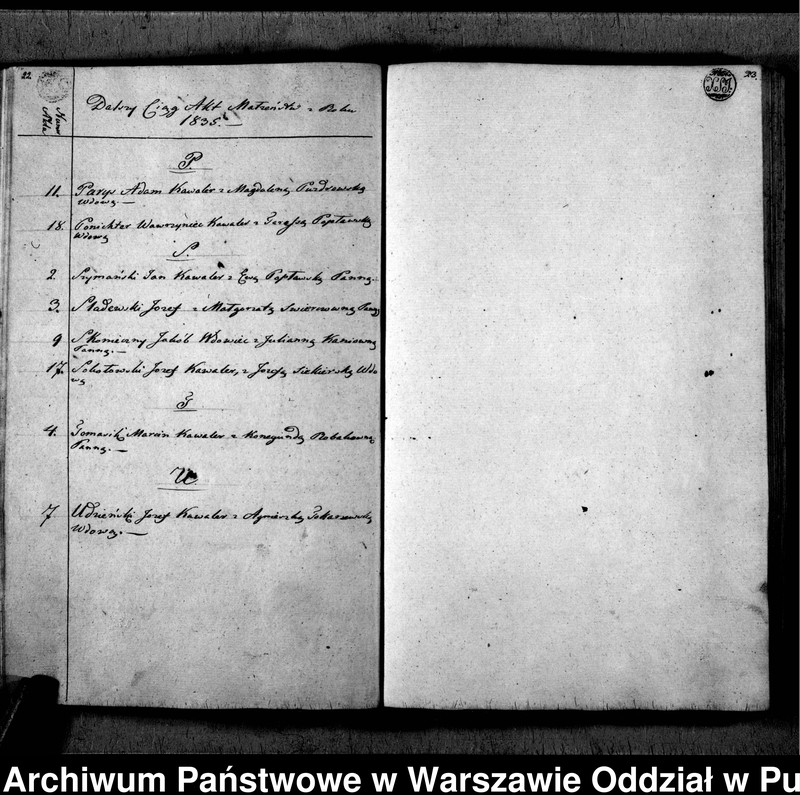 22.
23.
Numer Akta
Dalszy Ciąg Akt Małżeństw z Roku
1835.
P.
11. Parys Adam Kawaler z Magdaleną Puzdrowską
Wdową.
18. Ponichter Wawrzyniec Kawaler z Teressą Popławską
Wdową
S.
2. Szymański Jan Kawaler z Ewą Popławską Panną.
3. Sladewski Jozef z Małgorzatą Swierzewną Panną
9 Skonieczny Jakób Wdowiec z Julianną Kaniewną
Panną.
17. Sobotowski Jozef Kawaler, z Jozefą Siekierską Wdo
wą
T
4. Tomasik Marcin Kawaler z Konegundą Robakowną
Panną.
U.
7 Udzieński Jozef Kawaler z Agnieszką Tokarzewską
Wdową.
Archiwum Państwowe w Warszawie Oddział w Pu